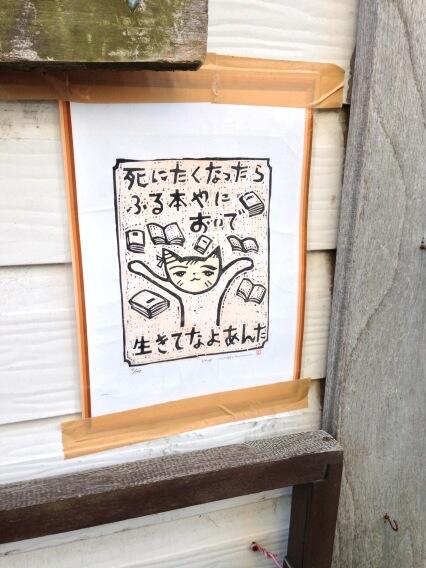 死にたくなったら
ふる本やに
おいで
生きてなよあんた